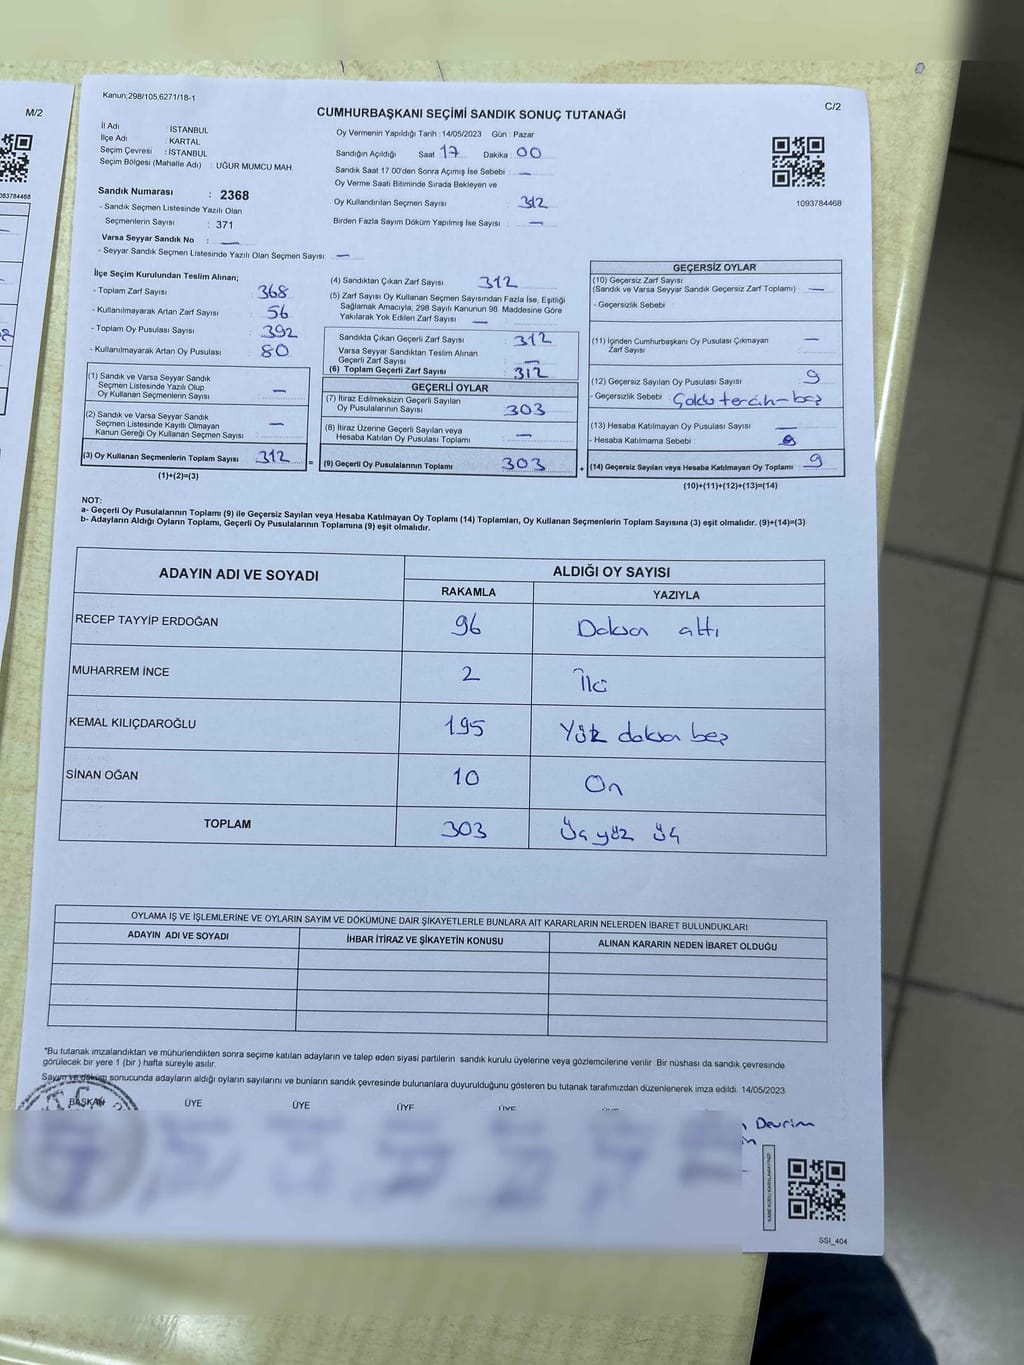 M/2
093784468
Kanun,298/105,6271/18-1
C/2
CUMHURBAŞKANI SEÇİMİ SANDIK SONUÇ TUTANAĞI
İl Adı : İSTANBUL
İlçe Adı : KARTAL
Seçim Çevresi : İSTANBUL
Seçim Bölgesi (Mahalle Adı) : UĞUR MUMCU MAH.
Sandık Numarası : 2368
- Sandık Seçmen Listesinde Yazılı Olan
Seçmenlerin Sayısı : 371
Varsa Seyyar Sandık No : —
- Seyyar Sandık Seçmen Listesinde Yazılı Olan Seçmen Sayısı: —
Oy Vermenin Yapıldığı Tarih : 14/05/2023 Gün : Pazar
Sandığın Açıldığı Saat 17 Dakika : 00
Sandık Saat 17.00'den Sonra Açımış İse Sebebi : —
Oy Verme Saati Bitiminde Sırada Bekleyen ve
Oy Kullandırılan Seçmen Sayısı : 312
Birden Fazla Sayım Döküm Yapılmış İse Sayısı : —
1093784468
İlçe Seçim Kurulundan Teslim Alınan;
- Toplam Zarf Sayısı : 368
- Kullanılmayarak Artan Zarf Sayısı : 56
- Toplam Oy Pusulası Sayısı : 392
- Kullanılmayarak Artan Oy Pusulası : 80
(1) Sandık ve Varsa Seyyar Sandık
Seçmen Listesinde Yazılı Olup
Oy Kullanan Seçmenlerin Sayısı : —
(2) Sandık ve Varsa Seyyar Sandık
Seçmen Listesinde Kayıtlı Olmayan
Kanun Gereği Oy Kullanan Seçmen Sayısı : —
(3) Oy Kullanan Seçmenlerin Toplam Sayısı : 312
(1)+(2)=(3)
(4) Sandıktan Çıkan Zarf Sayısı : 312
(5) Zarf Sayısı Oy Kullanan Seçmen Sayısından Fazla İse, Eşitliği
Sağlamak Amacıyla, 298 Sayılı Kanunun 98. Maddesine Göre
Yakılarak Yok Edilen Zarf Sayısı : —
Sandıkta Çıkan Geçerli Zarf Sayısı : 312
Varsa Seyyar Sandıktan Teslim Alınan
Geçerli Zarf Sayısı : —
(6) Toplam Geçerli Zarf Sayısı : 312
GEÇERLİ OYLAR
(7) İtiraz Edilmeksizin Geçerli Sayılan
Oy Pusulalarının Sayısı : 303
(8) İtiraz Üzerine Geçerli Sayılan veya
Hesaba Katılan Oy Pusulası Toplamı : —
= (9) Geçerli Oy Pusulalarının Toplamı : 303
GEÇERSİZ OYLAR
(10) Geçersiz Zarf Sayısı
(Sandık ve Varsa Seyyar Sandık Geçersiz Zarf Toplamı) : —
- Geçersizlik Sebebi :
(11) İçinden Cumhurbaşkanı Oy Pusulası Çıkmayan
Zarf Sayısı : —
(12) Geçersiz Sayılan Oy Pusulası Sayısı : 9
- Geçersizlik Sebebi :
(13) Hesaba Katılmayan Oy Pusulası Sayısı : —
- Hesaba Katılmama Sebebi :
+ (14) Geçersiz Sayılan veya Hesaba Katılmayan Oy Toplamı : 9
(10)+(11)+(12)+(13)=(14)
NOT:
a- Geçerli Oy Pusulalarının Toplamı (9) ile Geçersiz Sayılan veya Hesaba Katılmayan Oy Toplamı (14) Toplamları, Oy Kullanan Seçmenlerin Toplam Sayısına (3) eşit olmalıdır. (9)+(14)=(3)
b- Adayların Aldığı Oyların Toplamı, Geçerli Oy Pusulalarının Toplamına (9) eşit olmalıdır.
ADAYIN ADI VE SOYADI ALDIĞI OY SAYISI
RAKAMLA YAZIYLA
RECEP TAYYİP ERDOĞAN 96 Doksan altı
MUHARREM İNCE 2 İki
KEMAL KILIÇDAROĞLU 195 Yüz doksan beş
SİNAN OĞAN 10 On
TOPLAM 303 Üç yüz üç
OYLAMA İŞ VE İŞLEMLERİNE VE OYLARIN SAYIM VE DÖKÜMÜNE DAİR ŞİKAYETLERLE BUNLARA AİT KARARLARIN NELERDEN İBARET BULUNDUKLARI
ADAYIN ADI VE SOYADI İHBAR İTİRAZ VE ŞİKAYETİN KONUSU ALINAN KARARIN NEDEN İBARET OLDUĞU
*Bu tutanak imzalandıktan ve mühürlendikten sonra seçime katılan adayların ve talep eden siyasi partilerin sandık kurulu üyelerine veya gözlemcilerine verilir. Bir nüshası da sandık çevresinde
görülecek bir yere 1 (bir ) hafta süreyle asılır.
Sayım ve döküm sonucunda adayların aldığı oyların sayılarını ve bunların sandık çevresinde bulunanlara duyurulduğunu gösteren bu tutanak tarafımızdan düzenlenerek imza edildi. 14/05/2023
BAŞKAN ÜYE ÜYE ÜYE ÜYE
Devrim
SSI_404